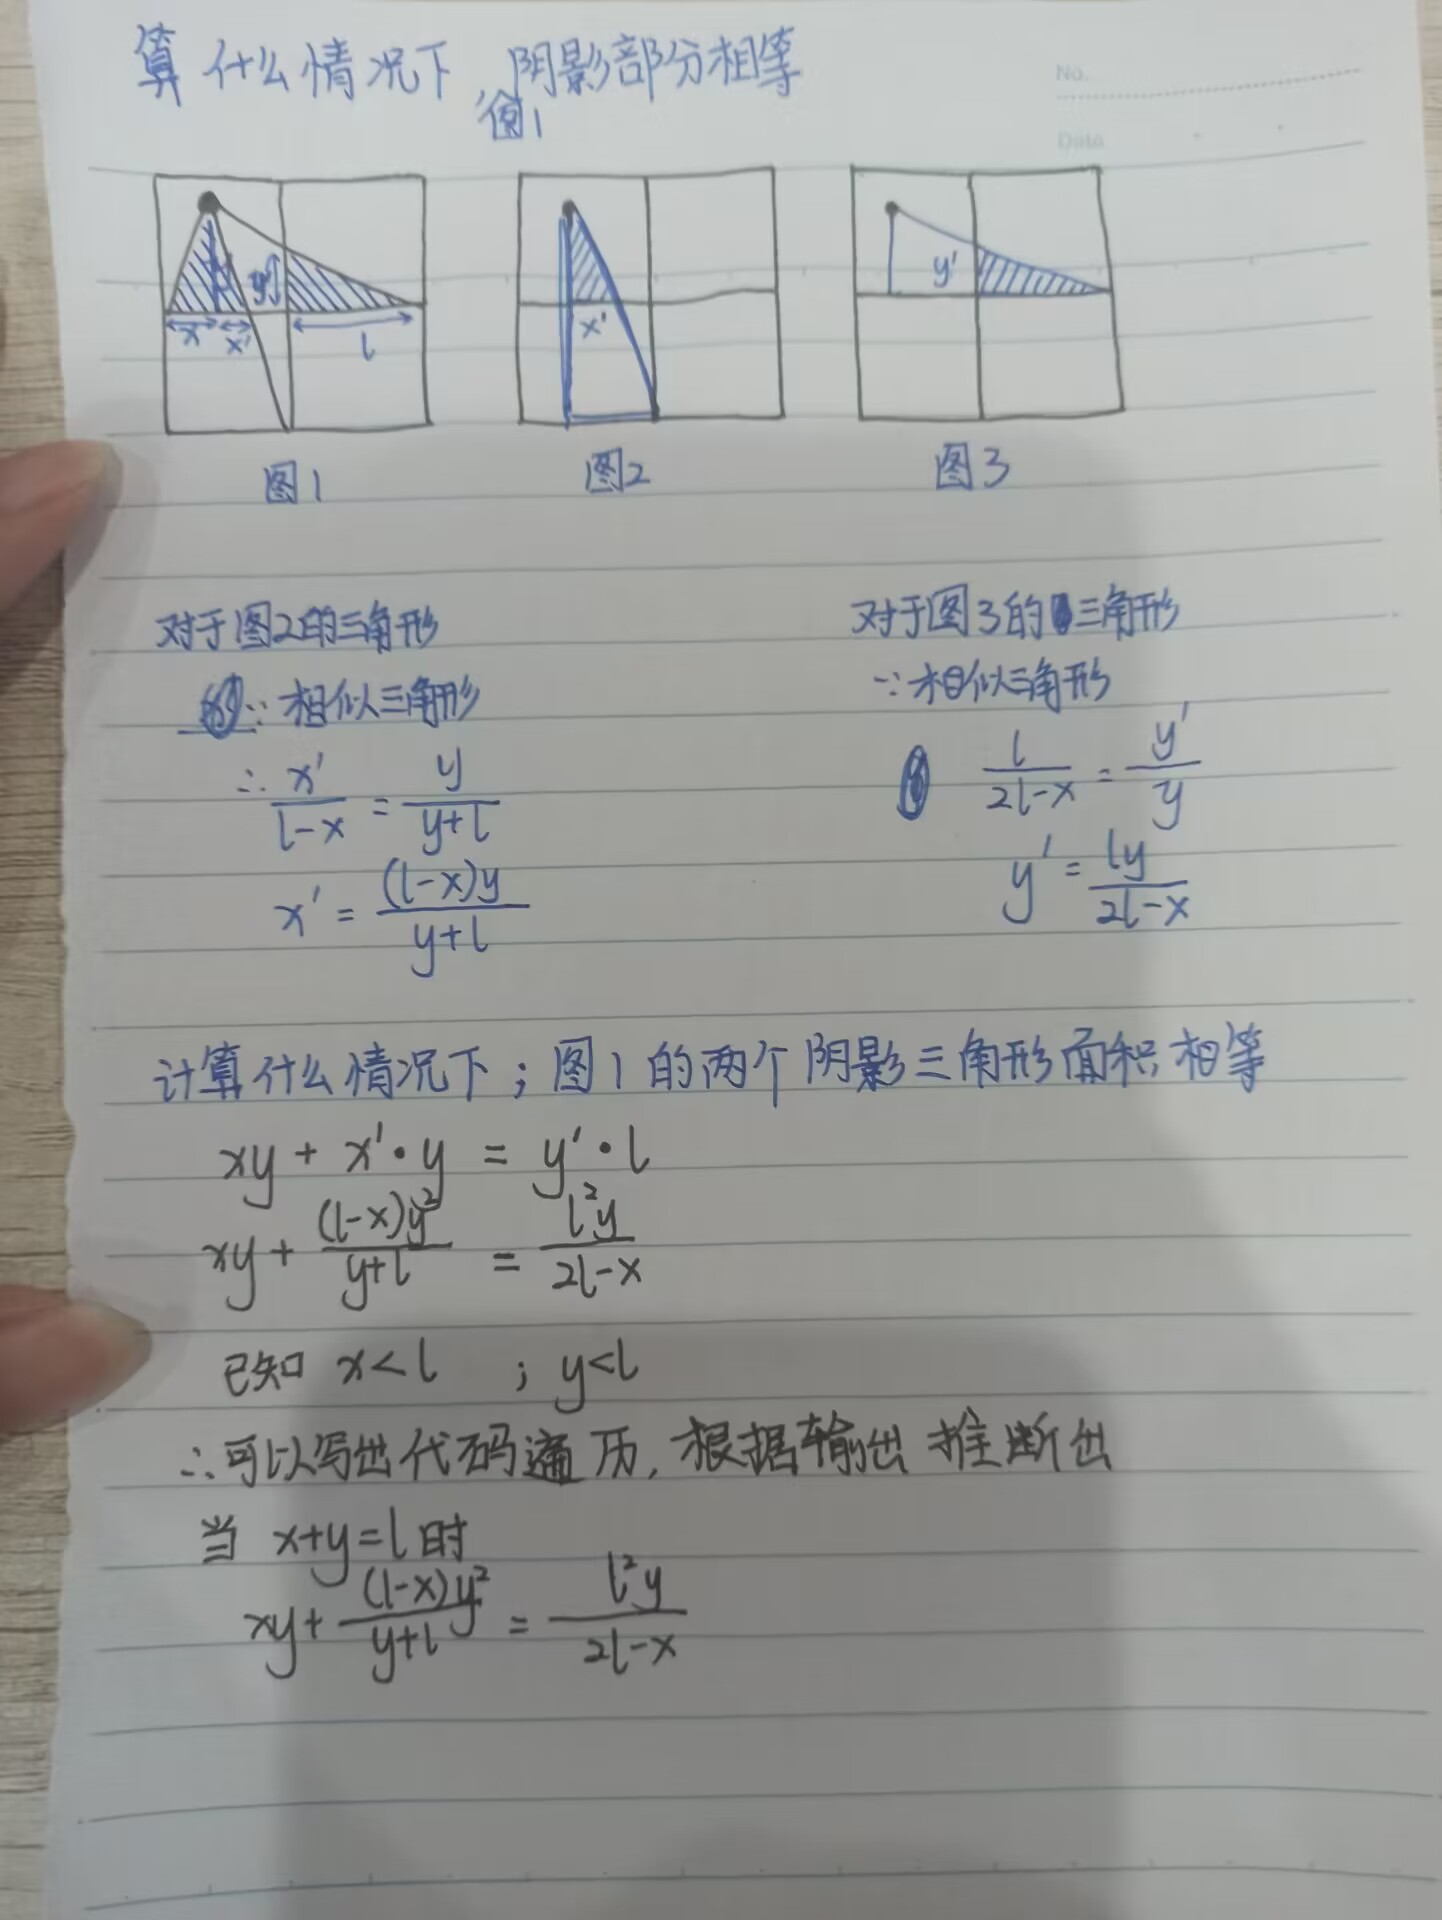 算什么情况下,阴影部分相等
图1
No.
Date
y' x x' l
x'
y'
图1 图2 图3
对于图2的三角形 对于图3的三角形
∵相似三角形 ∵相似三角形
∴ x'/(l-x) = y/(y+l) l/(2l-x) = y'/y
x' = (l-x)y/(y+l) y' = ly/(2l-x)
计算什么情况下;图1的两个阴影三角形面积相等
xy + x'·y = y'·l
xy + (l-x)y²/(y+l) = l²y/(2l-x)
已知 x<l ; y<l
∴可以写出代码遍历,根据输出推断出
当 x+y=l时
xy + (l-x)y²/(y+l) = l²y/(2l-x)